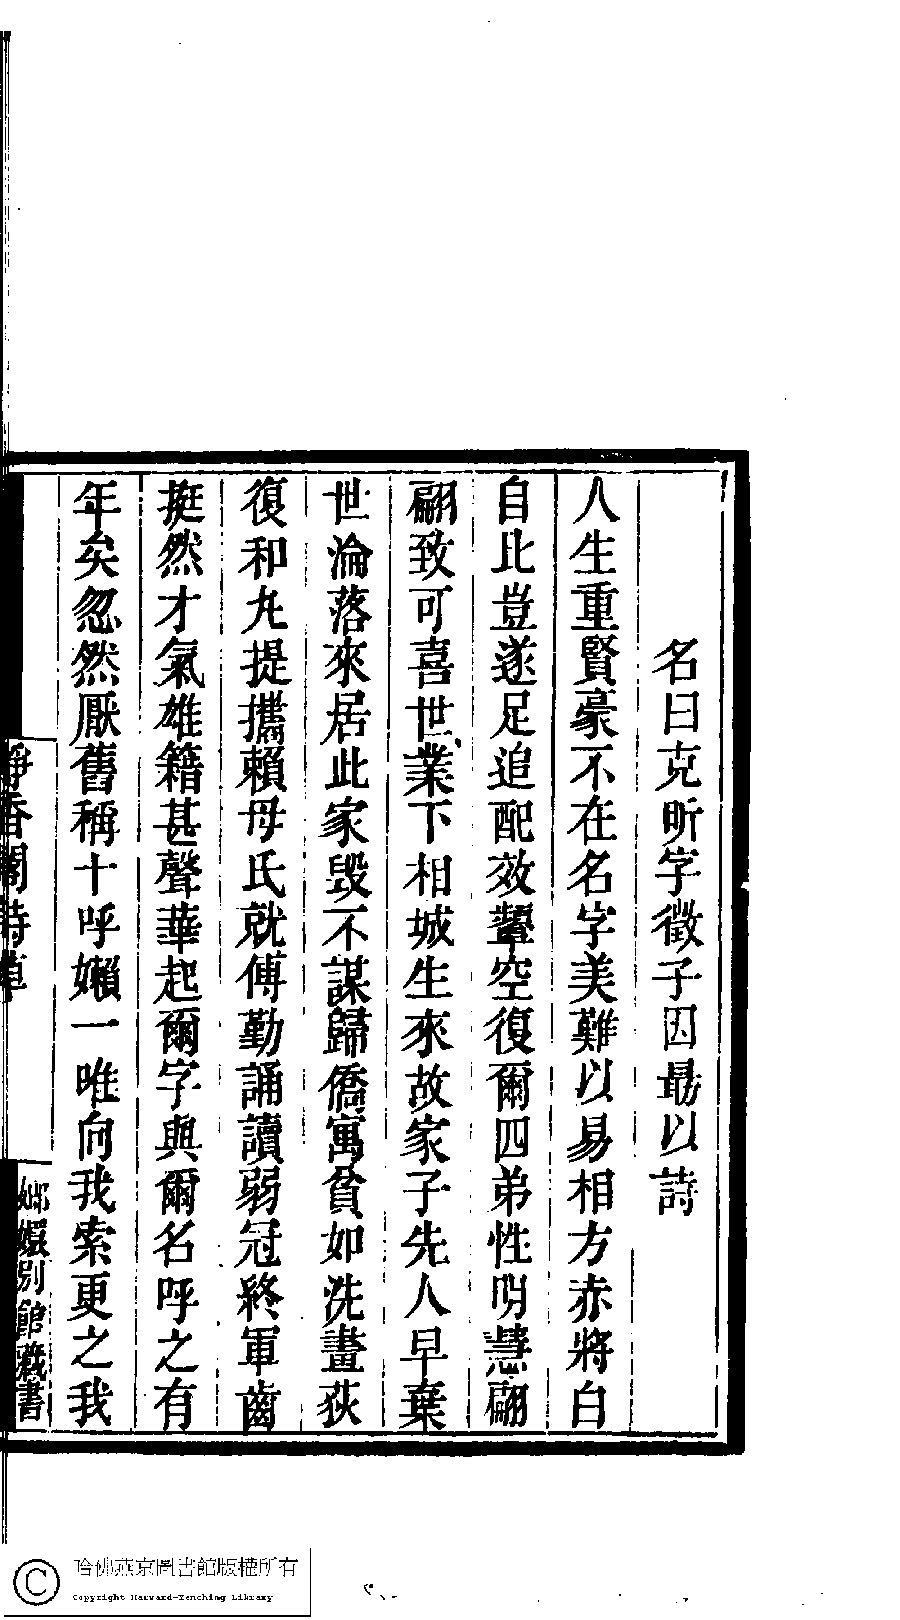 名曰克昕字徵子因最以詩
人生重賢豪不在名字美難以易相方赤將白
自比豈遂足追配效顰空復爾四弟性明慧翩
翩致可喜世業下相城生來故家子先人早棄
世淪落來居此家毀不謀歸僑寓貧如洗畫荻
復和丸提攜賴母氏就傅勤誦讀弱冠終軍齒
挺然才氣雄籍甚聲華起爾字與爾名呼之有
年矣忽然厭舊稱十呼嬾一唯向我索更之我
靜香閣詩草
嫏嬛別館藏書
哈佛燕京圖書館版權所有
Copyright Harvard-Yenching Library